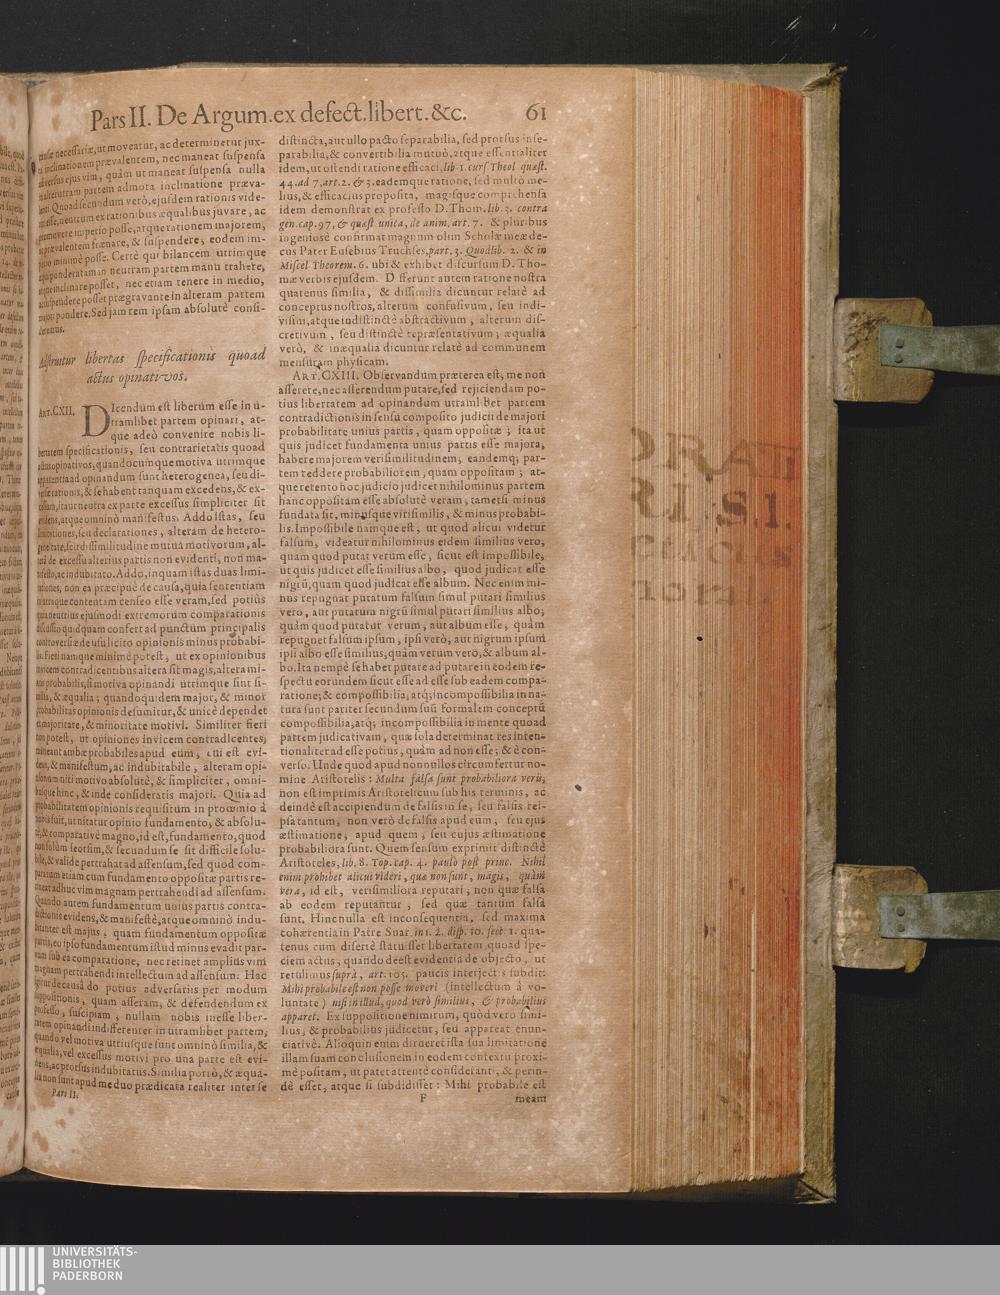 Pars II. De Argum. ex defect. libert. &c. 61
causæ necessariæ, ut moveatur, ac determinetur jux-
ta inclinationem prævalentem, nec maneat suspensa
adversus ejus vim; quàm ut maneat suspensa nulla
in alterutram partem admota inclinatione præva-
lenti. Quoad secundum verò, ejusdem rationis vide-
tur esse, neutrum ex rationibus æqualibus juvare, ac
promovere imperio posse, atque rationem majorem,
ac prævalentem frænare, & suspendere, eodem im-
perio minimè posse. Certè qui bilancem utrimque
æquiponderatam in neutram partem manu trahere,
atque inclinare posset, nec etiam tenere in medio,
ac suspendere posset prægravante in alteram partem
majori pondere. Sed jam rem ipsam absolutè consi-
deremus.
Asseritur libertas specificationis quoad
actus opinativos.
ART. CXII. DIcendum est liberum esse in u-
tramlibet partem opinari, at-
que adeò convenire nobis li-
bertatem specificationis, seu contrarietatis quoad
actus opinativos, quandocumque motiva utrimque
apparentia ad opinandum sunt heterogenea, seu di-
versæ rationis, & se habent tanquam excedens, & ex-
cessum, ita ut neutra ex parte excessus simpliciter sit
evidens, atque omninò manifestus. Addo istas, seu
limitationes, seu declarationes, alteram de hetero-
geneitate, seu dissimilitudine mutua motivorum, al-
teram de excessu alterius partis non evidenti, non ma-
nifesto, ac indubitato. Addo, inquam istas duas limi-
tationes, non ea præcipuè de causa, quia sententiam
utramque contentam censeo esse veram, sed potiùs
quia neutrius ejusmodi extremorum comparationis
discussio quidquam confert ad punctum principalis
controversiæ de usu licito opinionis minus probabi-
lis. Fieri namque minimè potest, ut ex opinionibus
invicem contradicentibus altera sit magis, altera mi-
nus probabilis, si motiva opinandi utrimque sint si-
milia, & æqualia; quandoquidem major, & minor
probabilitas opinionis desumitur, & unicè dependet
ex majoritate, & minoritate motivi. Similiter fieri
non potest, ut opiniones invicem contradicentes,
maneant ambæ probabiles apud eum, cui est evi-
dens, & manifestum, ac indubitabile, alteram opi-
nionum niti motivo absolutè, & simpliciter, omni-
busque hinc, & inde consideratis majori. Quia ad
probabilitatem opinionis requisitum in proœmio à
nobis fuit, ut nitatur opinio fundamento, & absolu-
tè, & comparativè magno, id est, fundamento, quod
non solùm seorsim, & secundum se sit difficile solu-
bile, & valide pertrahat ad assensum, sed quod com-
paratum etiam cum fundamento oppositæ partis re-
tineat adhuc vim magnam pertrahendi ad assensum.
Quando autem fundamentum unius partis contra-
dictionis evidens, & manifestè, atque omninò indu-
bitanter est majus, quam fundamentum oppositæ
partis, eo ipso fundamentum istud minus evadit par-
vum sub ea comparatione, nec retinet amplius vim
magnam pertrahendi intellectum ad assensum. Hac
igitur de causâ do potius adversariis per modum
suppositionis, quam asseram, & defendendum ex
professo, suscipiam, nullam nobis inesse liber-
tatem opinandi indifferenter in utramlibet partem,
quando vel motiva utriusque sunt omninò similia, &
æqualia, vel excessus motivi pro una parte est evi-
dens, ac prorsus indubitatus. Similia porrò, & æqua-
lia non sunt apud me duo prædicata realiter inter se
Pars II.
distincta, aut ullo pacto separabilia, sed prorsus inse-
parabilia, & convertibilia mutuò, atque essentialiter
idem, ut ostendi ratione efficaci, lib. 1. curs. Theol. quæst.
44. ad 7. art. 2. & 3. eademque ratione, sed multò me-
lius, & efficacius proposita, magisque comprehensa
idem demonstrat ex professo D. Thom. lib. 3. contra
gen. cap. 97. & quæst. unica, de anim. art. 7. & pluribus
ingeniosè confirmat magnum olim Scholæ meæ de-
cus Pater Eusebius Truchses, part. 3. Quodlib. 2. & in
Miscel. Theorem. 6. ubi & exhibet discursum D. Tho-
mæ verbis ejusdem. Differunt autem ratione nostra
quatenus similia, & dissimilia dicuntur relatè ad
conceptus nostros, alterum confusivum, seu indi-
visim, atque indistinctè abstractivum, alterum dis-
cretivum, seu distinctè repræsentativum; æqualia
verò, & inæqualia dicuntur relatè ad communem
mensuram physicam.
ART. CXIII. Observandum præterea est, me non
asserere, nec asserendum putare, sed rejiciendam po-
tius libertatem ad opinandum utramlibet partem
contradictionis in sensu composito judicii de majori
probabilitate unius partis, quam oppositæ; ita ut
quis judicet fundamenta unius partis esse majora,
habere majorem verisimilitudinem, eandemq; par-
tem reddere probabiliorem, quam oppositam; at-
que retento hoc judicio judicet nihilominus partem
hanc oppositam esse absolutè veram, tametsi minus
fundata sit, minusque virisimilis, & minus probabi-
lis. Impossibile namque est, ut quod alicui videtur
falsum, videatur nihilominus eidem similius vero,
quam quod putat verum esse, sicut est impossibile,
ut quis judicet esse similius albo, quod judicat esse
nigrū, quam quod judicat esse album. Nec enim mi-
nus repugnat putatum falsum simul putari similius
vero, aut putatum nigrū simul putari similius albo;
quàm quod putatur verum, aut album esse, quàm
repugnet falsum ipsum, ipsi verò; aut nigrum ipsum
ipsi albo esse similius, quàm verum verò, & album al-
bo. Ita nempè se habet putare ad putare in eodem re-
spectu eorundem sicut esse ad esse sub eadem compa-
ratione; & compossibilia, atq; incompossibilia in na-
tura sunt pariter secundum suū formalem conceptū
compossibilia, atq; incompossibilia in mente quoad
partem judicativam, quæ sola determinat res inten-
tionaliter ad esse potius, quàm ad non esse; & è con-
verso. Unde quod apud nonnullos circumfertur no-
mine Aristotelis: Multa falsa sunt probabiliora veris,
non est imprimis Aristotelicum sub his terminis, ac
deindè est accipiendum de falsis in se, seu falsis rei-
psa tantum, non verò de falsis apud eum, seu ejus
æstimatione, apud quem, seu cujus æstimatione
probabiliora sunt. Quem sensum exprimit distinctè
Aristoteles, lib. 8. Top. cap. 4. paulò post princ. Nihil
enim prohibet alicui videri, quæ non sunt, magis, quàm
vera, id est, verisimiliora reputari, non quæ falsa
ab eodem reputantur, sed quæ tantùm falsa
sunt. Hinc nulla est inconsequentia, sed maxima
cohærentia in Patre Suar. in 1. 2. disp. 10. sect. 1. qua-
tenus cum disertè statuisset libertatem quoad spe-
ciem actus, quando deest evidentia de objecto, ut
retulimus suprà, art. 105. paucis interjectis subdit:
Mihi probabile est non posse moveri (intellectum à vo-
luntate) nisi in illud, quod verò similius, & probabilius
apparet. Ex suppositione nimirum, quòd vero simi-
lius, & probabilius judicetur, seu appareat enun-
ciativè. Alioquin enim dirueret ista sua limitatione
illam suam conclusionem in eodem contextu proxi-
mè positam, ut patet attentè consideranti, & perin-
dè esset, atque si subdidisset: Mihi probabile est
F meam
UNIVERSITÄTS-
BIBLIOTHEK
PADERBORN